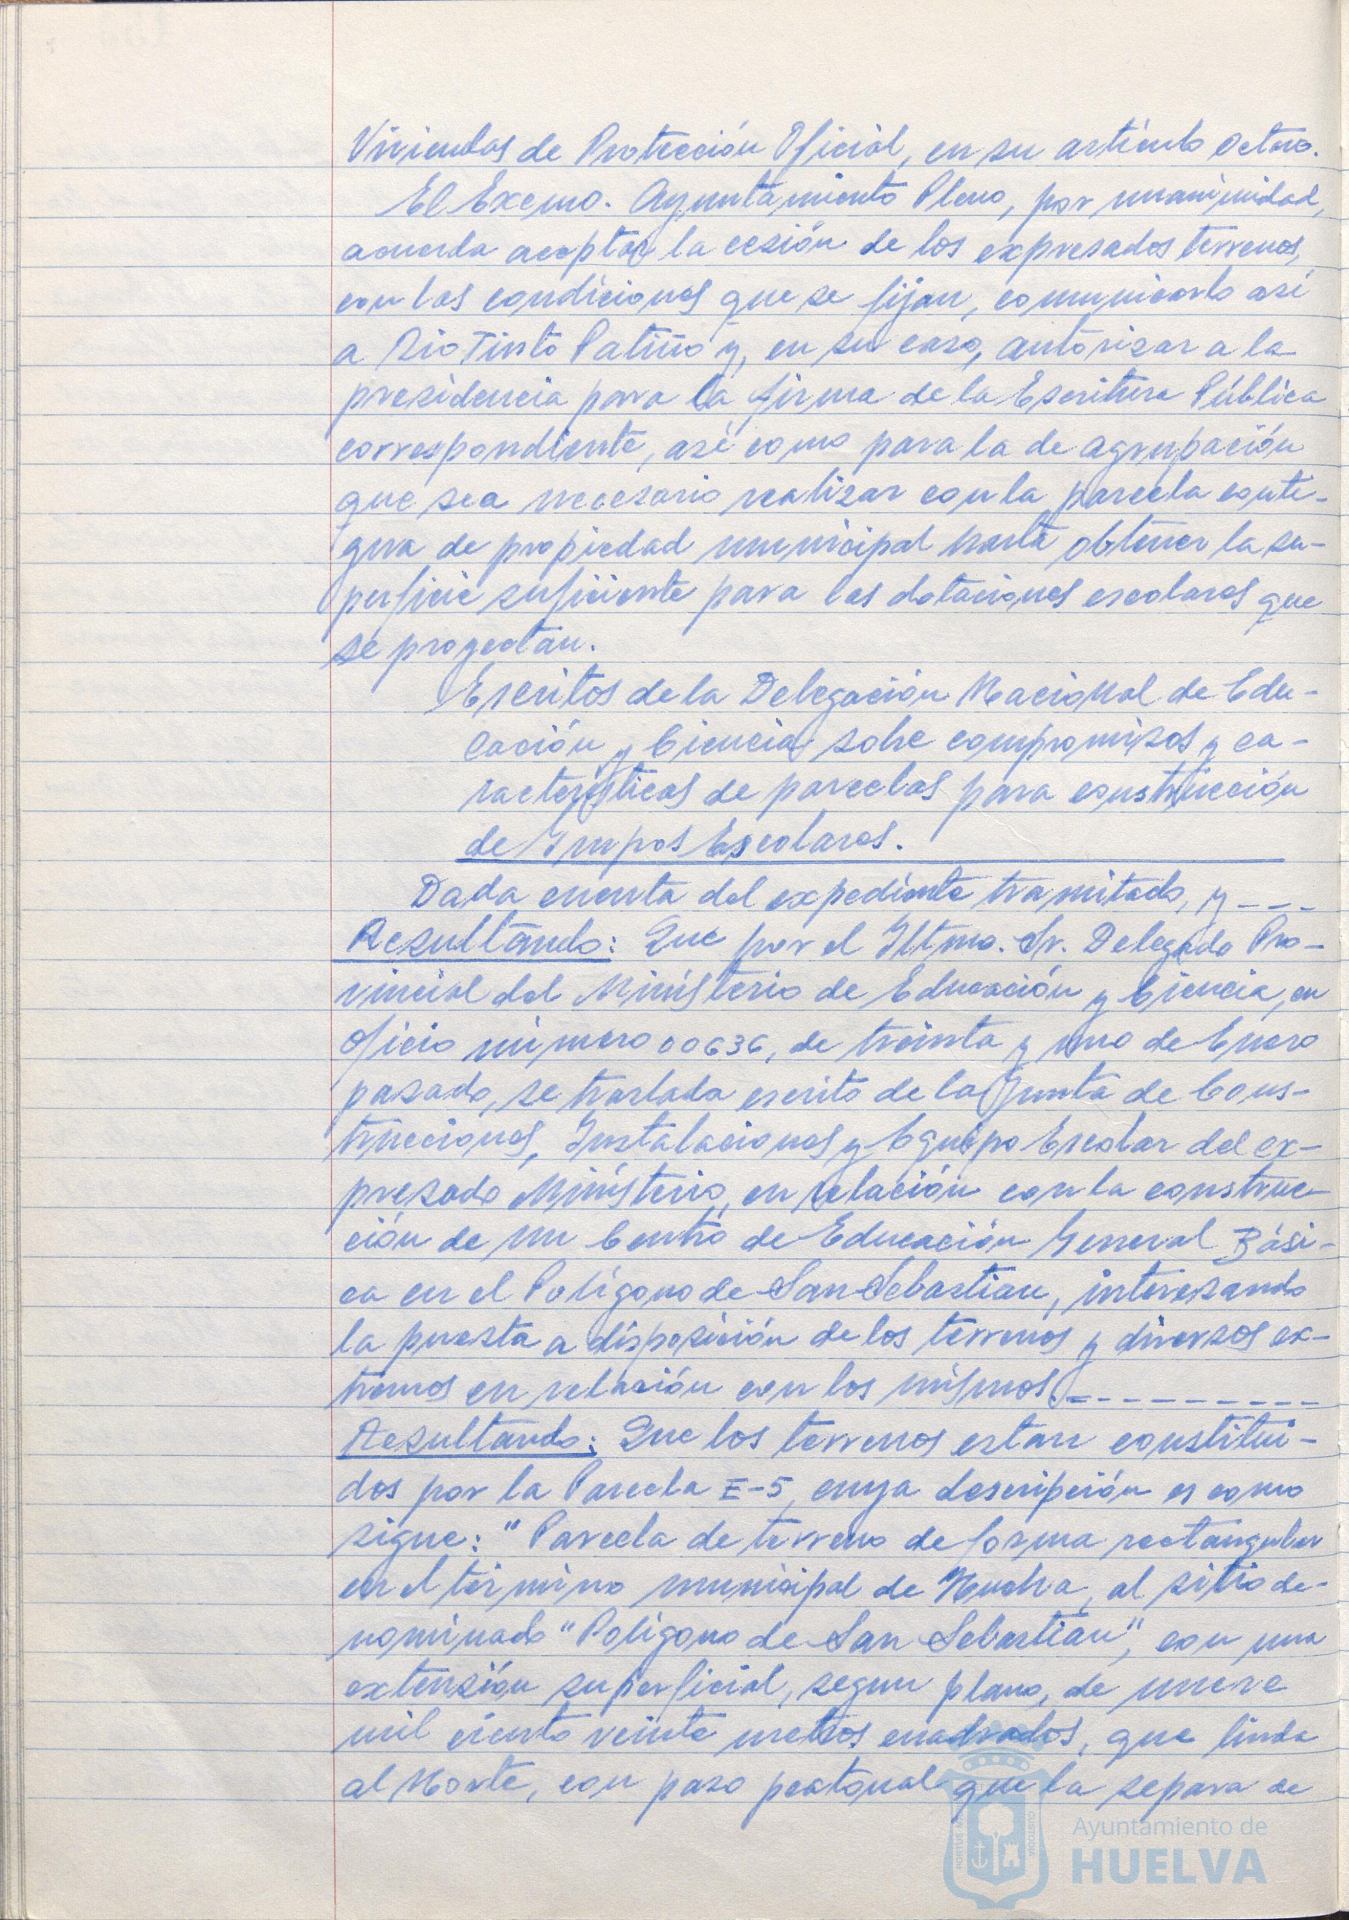 Viviendas de Protección Oficial, en su artículo octavo.
El Excmo. Ayuntamiento Pleno, por unanimidad,
acuerda aceptar la cesión de los expresados terrenos,
con las condiciones que se fijan, comunicarlo así
a Rio Tinto Patiño y, en su caso, autorizar a la
presidencia para la firma de la Escritura Pública
correspondiente, así como para la de agrupación
que sea necesario realizar con la parcela conti-
gua de propiedad municipal hasta obtener la su-
perficie suficiente para las dotaciones escolares que
se proyectan.
Escritos de la Delegación Nacional de Edu-
cación y Ciencia, sobre compromisos y ca-
racterísticas de parcelas para construcción
de Grupos Escolares.
Dada cuenta del expediente tramitado, y ---
Resultando: Que por el Iltmo. Sr. Delegado Pro-
vincial del Ministerio de Educación y Ciencia, en
oficio número 00636, de treinta y uno de Enero
pasado, se traslada escrito de la Junta de Cons-
trucciones, Instalaciones y Equipo Escolar del ex-
presado Ministerio, en relación con la construc-
ción de un Centro de Educación General Bási-
ca en el Polígono de San Sebastian, interesando
la puesta a disposición de los terrenos y diversos ex-
tremos en relación con los mismos. ----------
Resultando: Que los terrenos estan constitui-
dos por la Parcela E-5, cuya descripción es como
sigue: "Parcela de terreno de forma rectangular
en el término municipal de Huelva, al sitio de-
nominado "Polígono de San Sebastian", con una
extensión superficial, segun plano, de nueve
mil ciento veinte metros cuadrados, que linda
al Norte, con paso peatonal que la separa de
Ayuntamiento de
HUELVA